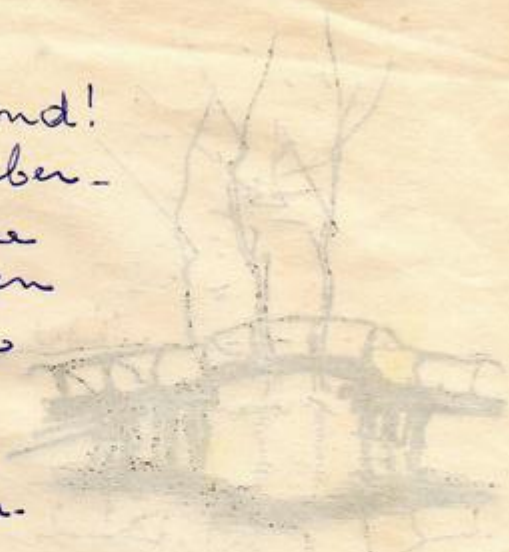 nd!
ber-
e
en